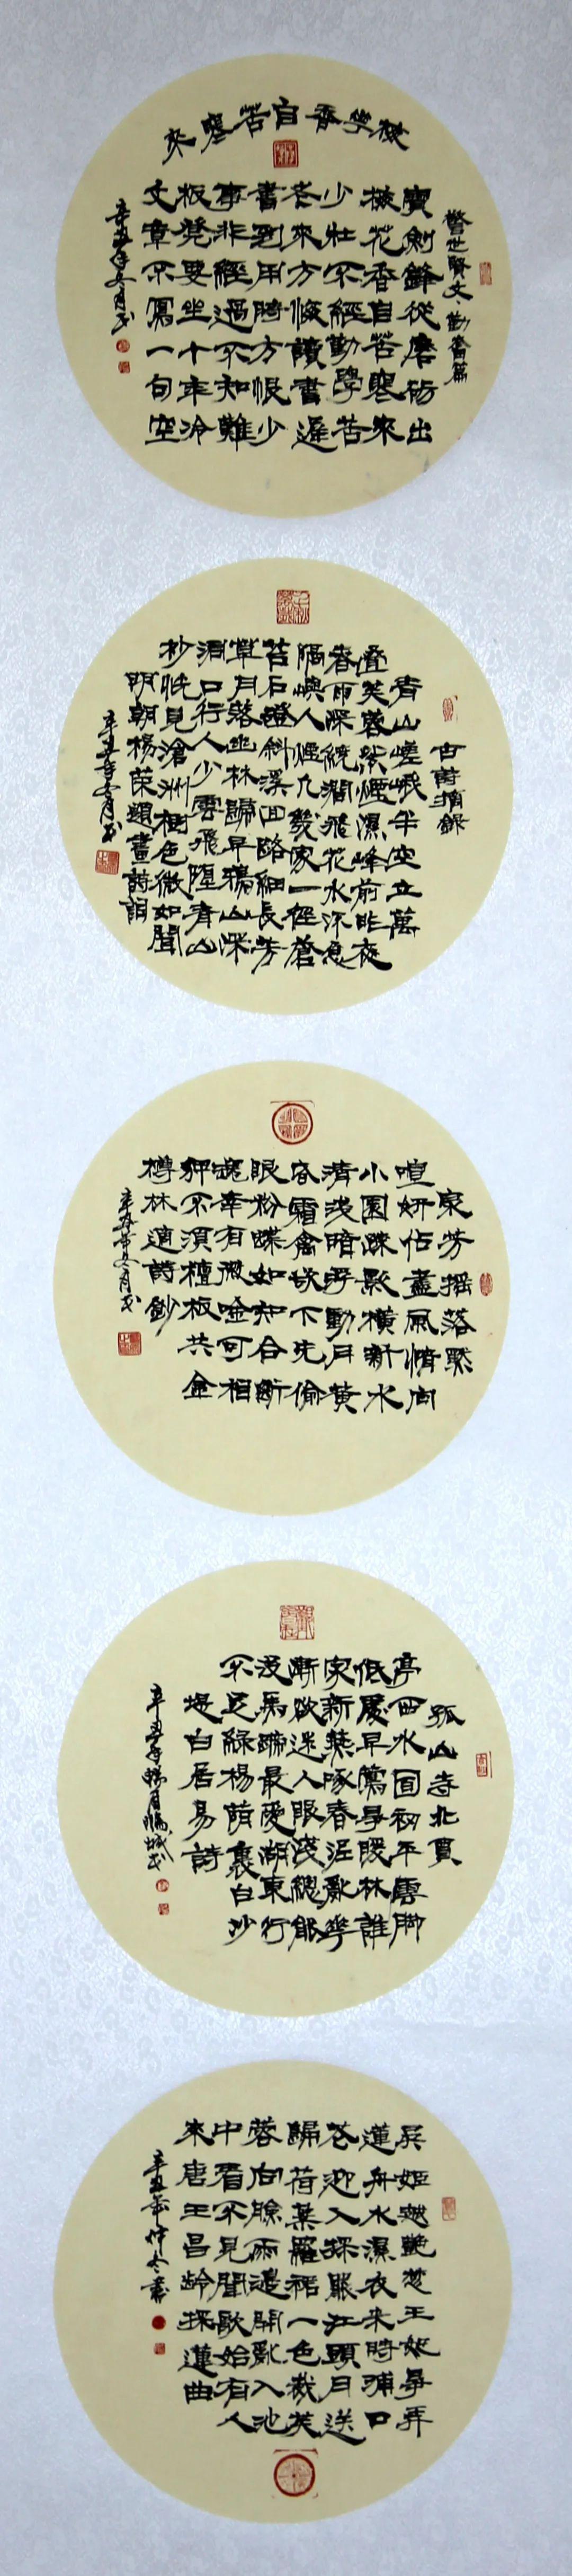 梅華香自苦寒來
警世賢文、勤奮篇
寶劍鋒從磨礪出
梅花香自苦寒來
少壯不經勤學苦
老來方悔讀書遲
書到用時方恨少
事非經過不知難
板凳要坐十年冷
文章不寫一句空
辛丑年冬月書
古詩摘錄
青山嵯峨半空立萬
疊芙蓉紫煙濕峰前昨夜
春雨深繞澗飛花水流急
隔嶼人煙九幾家一徑蒼
苔石磴斜溪回路細長芳
草月落幽林歸早鴉山深
洞口行人少雲飛墮青山
杪恍見滄洲樹色微如聞
明朝楊榮題畫詩詞
辛丑年冬月書
衆芳搖落默
喧妍佔盡風情向
小園疏影橫斜水
清淺暗浮動月黃
昏霜禽欲下先偷
眼粉蝶如知合斷
魂幸有微吟可相
狎不須檀板共金
樽林逋詩鈔
辛丑年冬月書
孤山寺北賈
亭西水面初平雲腳
低處早鶯爭暖林誰
家新燕啄春泥亂華
漸欲迷人眼淺總能
沒馬蹄最愛湖東行
不足綠楊蔭裏白沙
堤白居易詩
辛丑年臘月書
吳姬越艷楚王妃爭弄
蓮舟水濕衣來時浦口
花迎入採罷江頭月送
歸荷葉羅裙一色裁芙
蓉向臉兩邊開亂入池
中看不見聞歌始有人
來唐王昌齡採蓮曲
辛丑年仲冬書